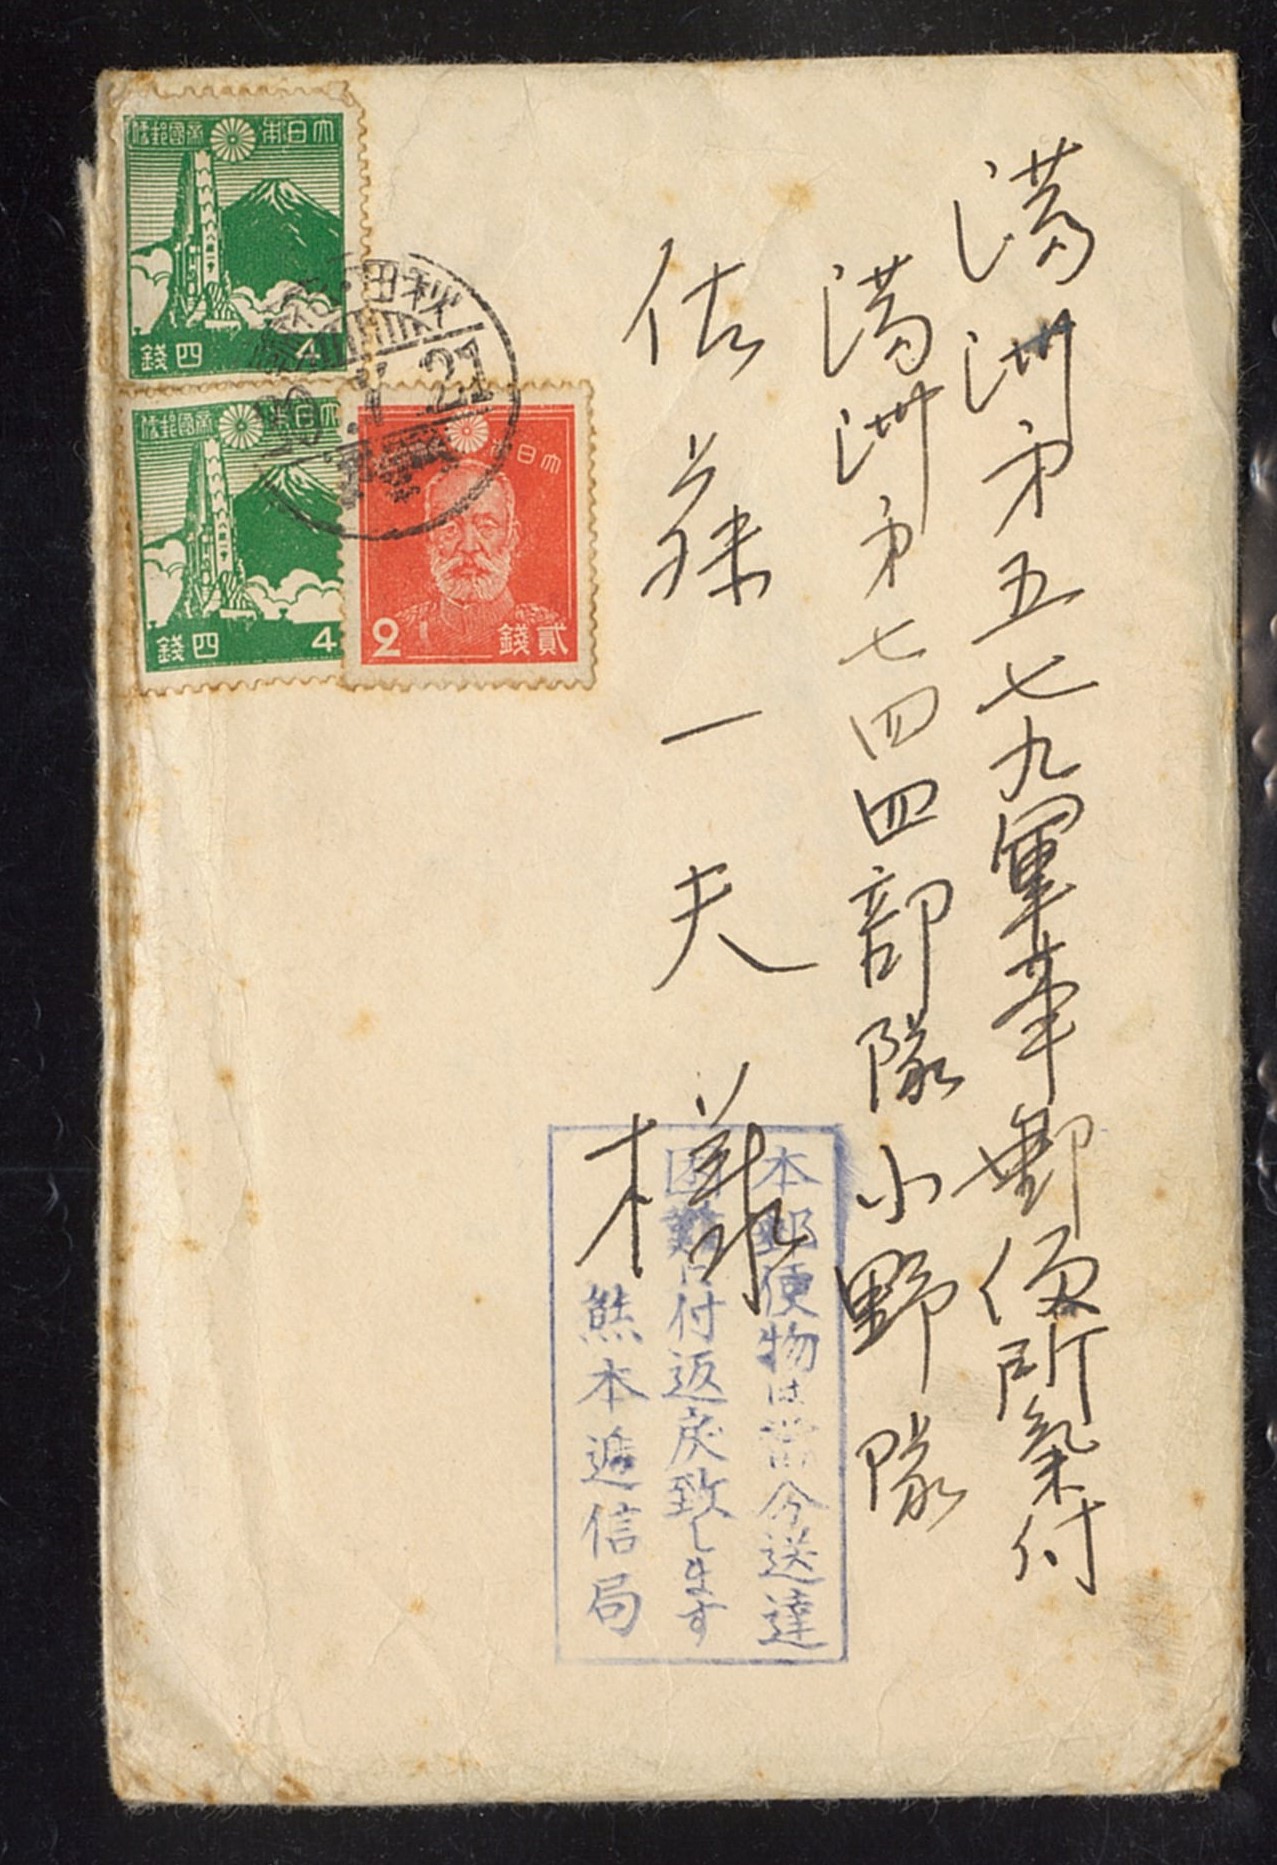 満洲第五七九軍事郵便所氣付
満洲第七四四部隊小野隊
佐藤一夫様
本郵便物は當分送達
困難に付返戻致します
熊本逓信局
大日本帝國郵便
四錢 4
大日本帝國郵便
四錢 4
大日本
2 貳錢
秋田
7.21